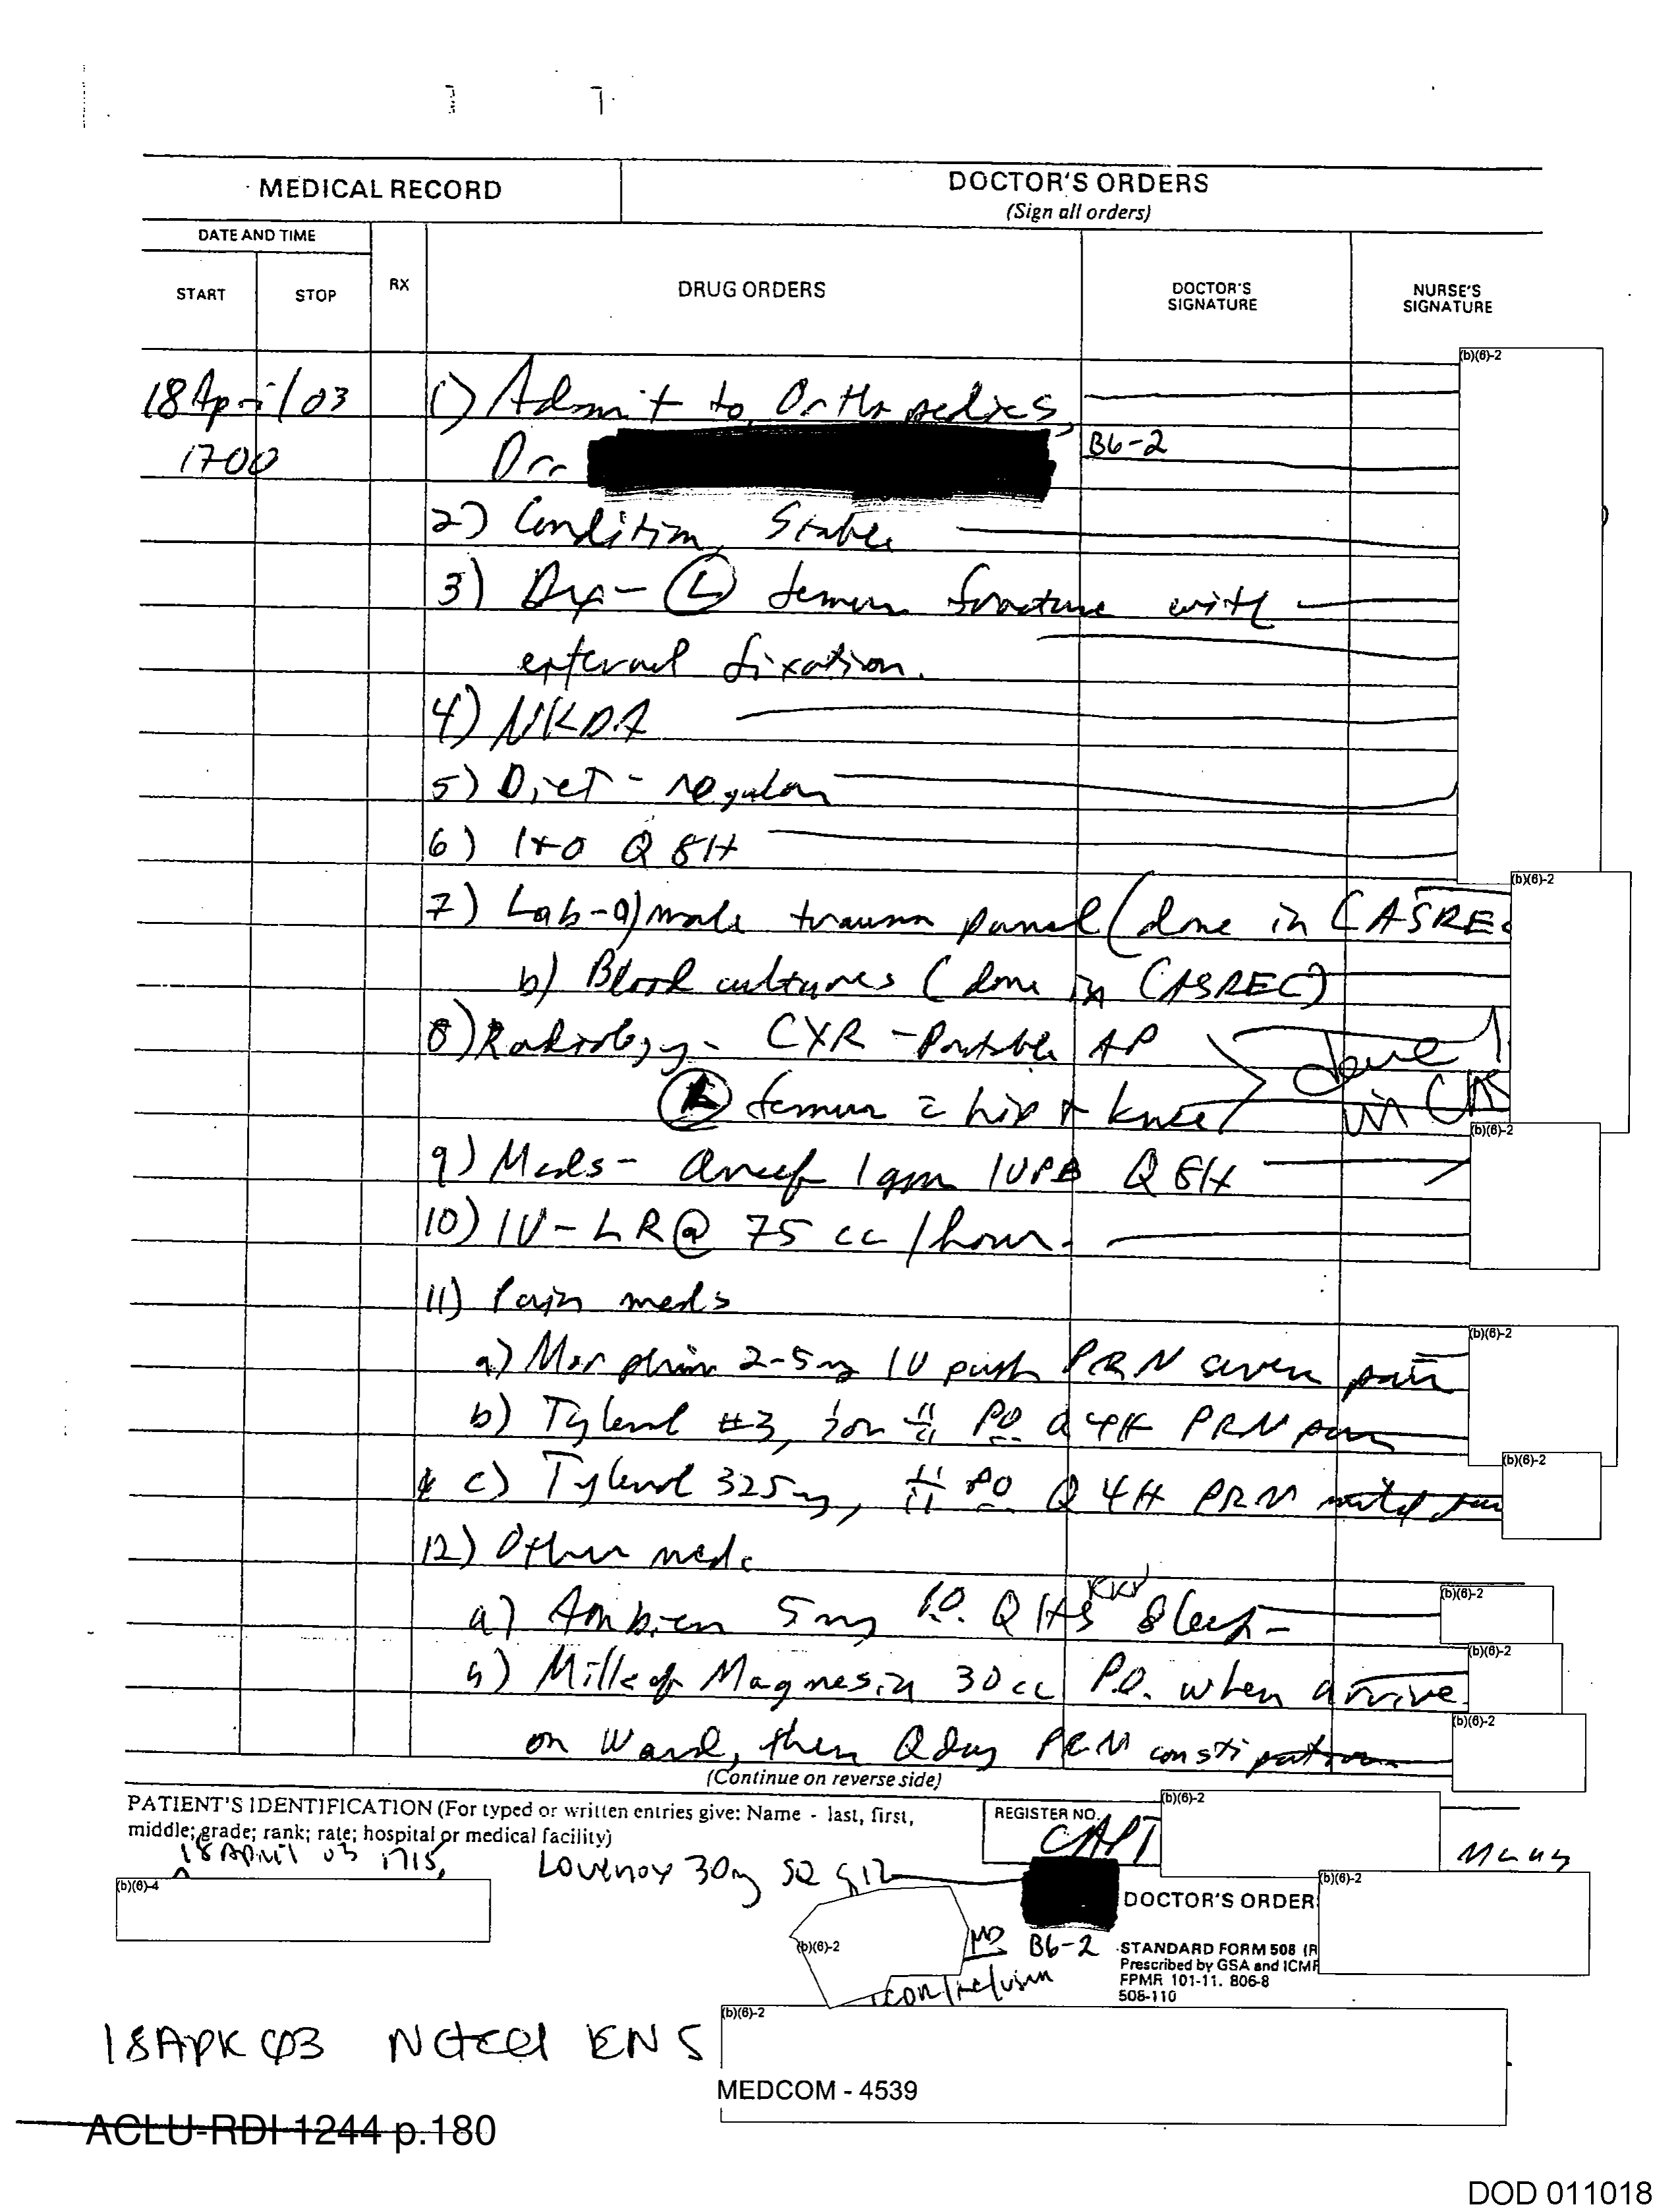 MEDICAL RECORD
DOCTOR'S ORDERS
(Sign all orders)
DATE AND TIME
START
STOP
RX
DRUG ORDERS
DOCTOR'S SIGNATURE
NURSE'S SIGNATURE
(b)(6)-2
18 April 03
1) Admit to Orthopedics,
1700
Dr.
B6-2
2) Condition, Stable
3) Dx- (L) femur fracture with
external fixation.
4) NKDA
5) Diet - regular
6) I+O Q 8H
(b)(6)-2
7) Lab-a) male trauma panel (done in CASREC
b) Blood cultures (done in CASREC)
8) Radiology - CXR - Portable AP
done
femur c̄ hip + knee
in CAS
(b)(6)-2
9) Meds- Ancef 1 gm IVPB Q 8H
10) IV - LR @ 75 cc/hour.
11) Pain meds
(b)(6)-2
a) Morphine 2-5mg IV push PRN severe pain
b) Tylenol #3, i or ii PO Q 4H PRN pain
(b)(6)-2
c) Tylenol 325mg, ii PO Q 4H PRN mild pain
12) Other meds
(b)(6)-2
a) Ambien 5mg P.O. QHS PRN Sleep-
(b)(6)-2
b) Milk of Magnesia 30cc P.O. when arrive
(b)(6)-2
on ward, then Q day PRN constipation
(Continue on reverse side)
PATIENT'S IDENTIFICATION (For typed or written entries give: Name - last, first,
middle; grade; rank; rate; hospital or medical facility)
REGISTER NO.
(b)(6)-2
CAPT
18 April 03 1715,
Lovenox 30mg SQ q12
(b)(6)-4
(b)(6)-2
DOCTOR'S ORDER
(b)(6)-2
MD
B6-2
STANDARD FORM 508 (R
Prescribed by GSA and ICMR
FPMR 101-11. 806-8
508-110
(b)(6)-2
18APR 03 Noted ENS
MEDCOM - 4539
ACLU-RDI 1244 p.180
DOD 011018